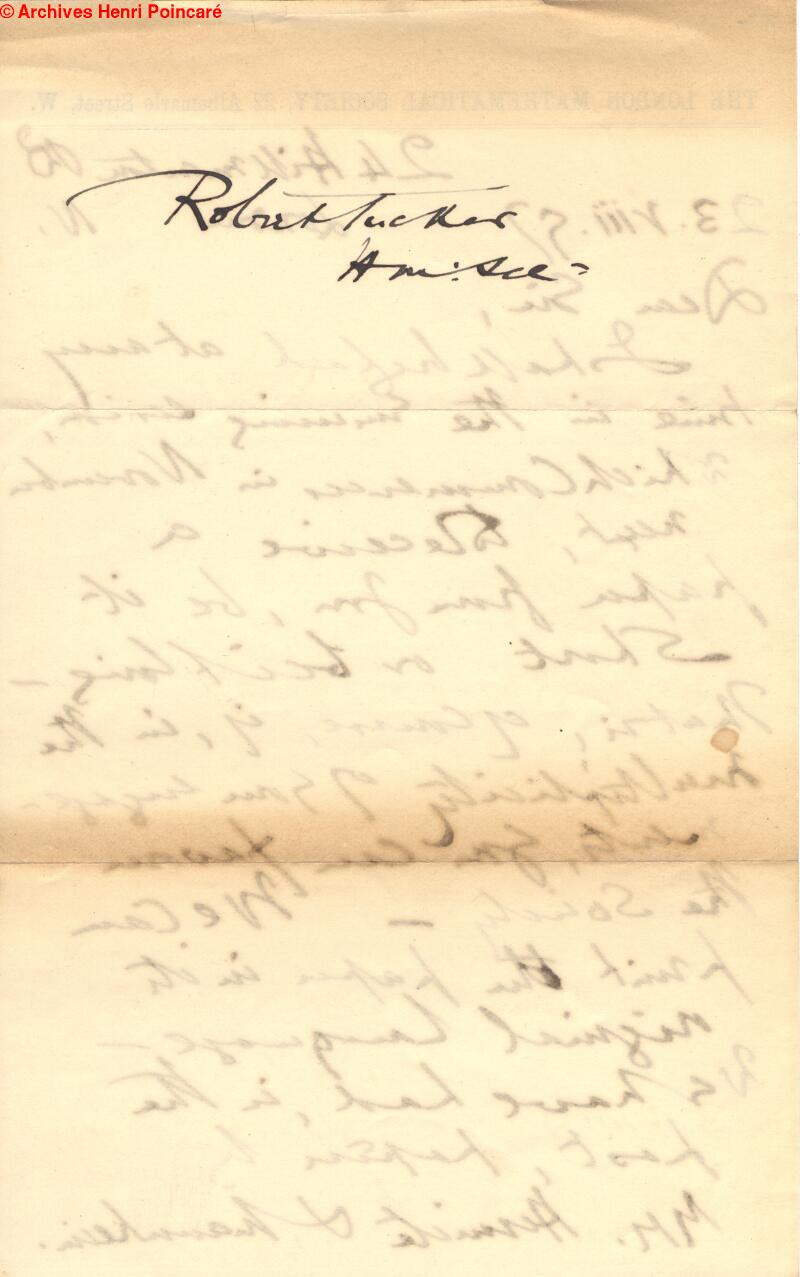 © Archives Henri Poincaré
THE LONDON MATHEMATICAL SOCIETY, 22 Albemarle Street, W.
24 Hillmarton Rd
Robert Tucker
23.VIII.97 N.
Hon: Sec =
Dear Sir,
I shall be glad at any
time in the ensuing
which commences in November
next, receive a
paper from you, be it
short or be it long —
that is, of course, if, in the
multiplicity of your engage-
ments, you can favour
the Society — We can
print the paper in its
original language —
We have had, in the
past, papers by
MM. Hermite & Mannheim.